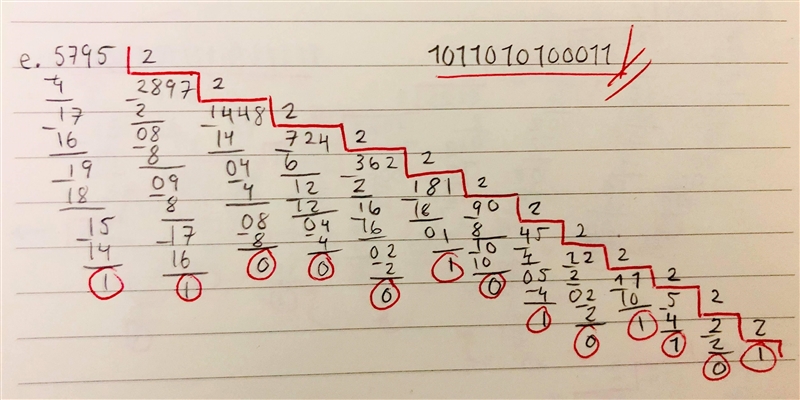 e. 5795 2 1011010100011
-4 -2897 2
17 2 1448 2
-16 08 -14 -724 2
19 -8 04 6 -362 2
-18 09 -4 12 -2 -181 2
-15 -8 08 -12 16 -18 -90 2
-14 -17 -8 04 -16 01 8 45 2
1 16 0 -4 02 -1 -10 -4 -22 2
1 0 -2 1 10 05 2 -11 2
0 0 -4 02 10 -5 2
1 -2 1 4 -2 2
0 1 2 1
0